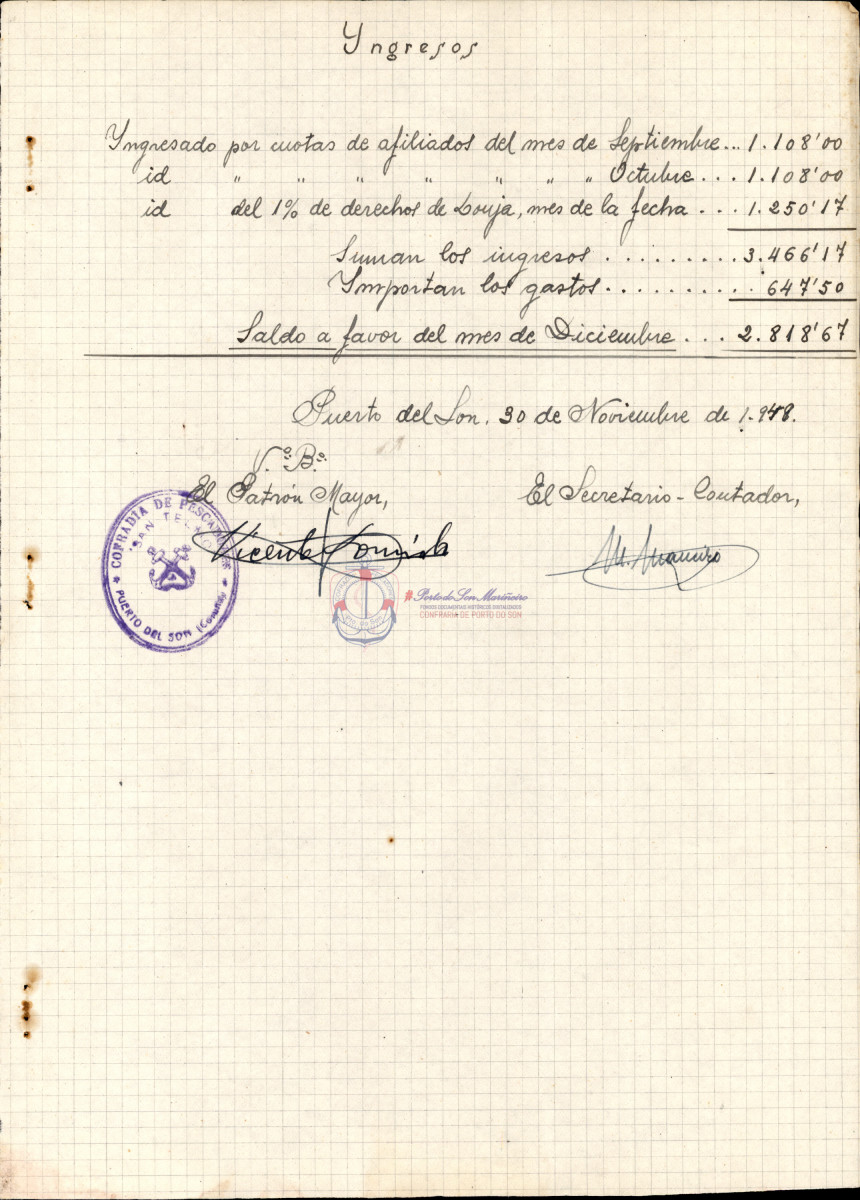 Yngresos
Yngresado por cuotas de afiliados del mes de Septiembre... 1.108'00
id " " " " " " " Octubre... 1.108'00
id del 1% de derechos de Lonja, mes de la fecha... 1.250'17
Suman los ingresos.......... 3.466'17
Ymportan los gastos.......... 647'50
Saldo a favor del mes de Diciembre... 2.818'67
Puerto del Son, 30 de Noviembre de 1.948.
V.º B.º
El Patrón Mayor,
El Secretario-Contador,
Vicente
COFRADIA DE PESCADORES
"SAN TELMO"
PUERTO DEL SON (Coruña)
Porto do Son Mariñeiro
FONDOS DOCUMENTAIS HISTÓRICOS DIXITALIZADOS
CONFRARÍA DE PORTO DO SON